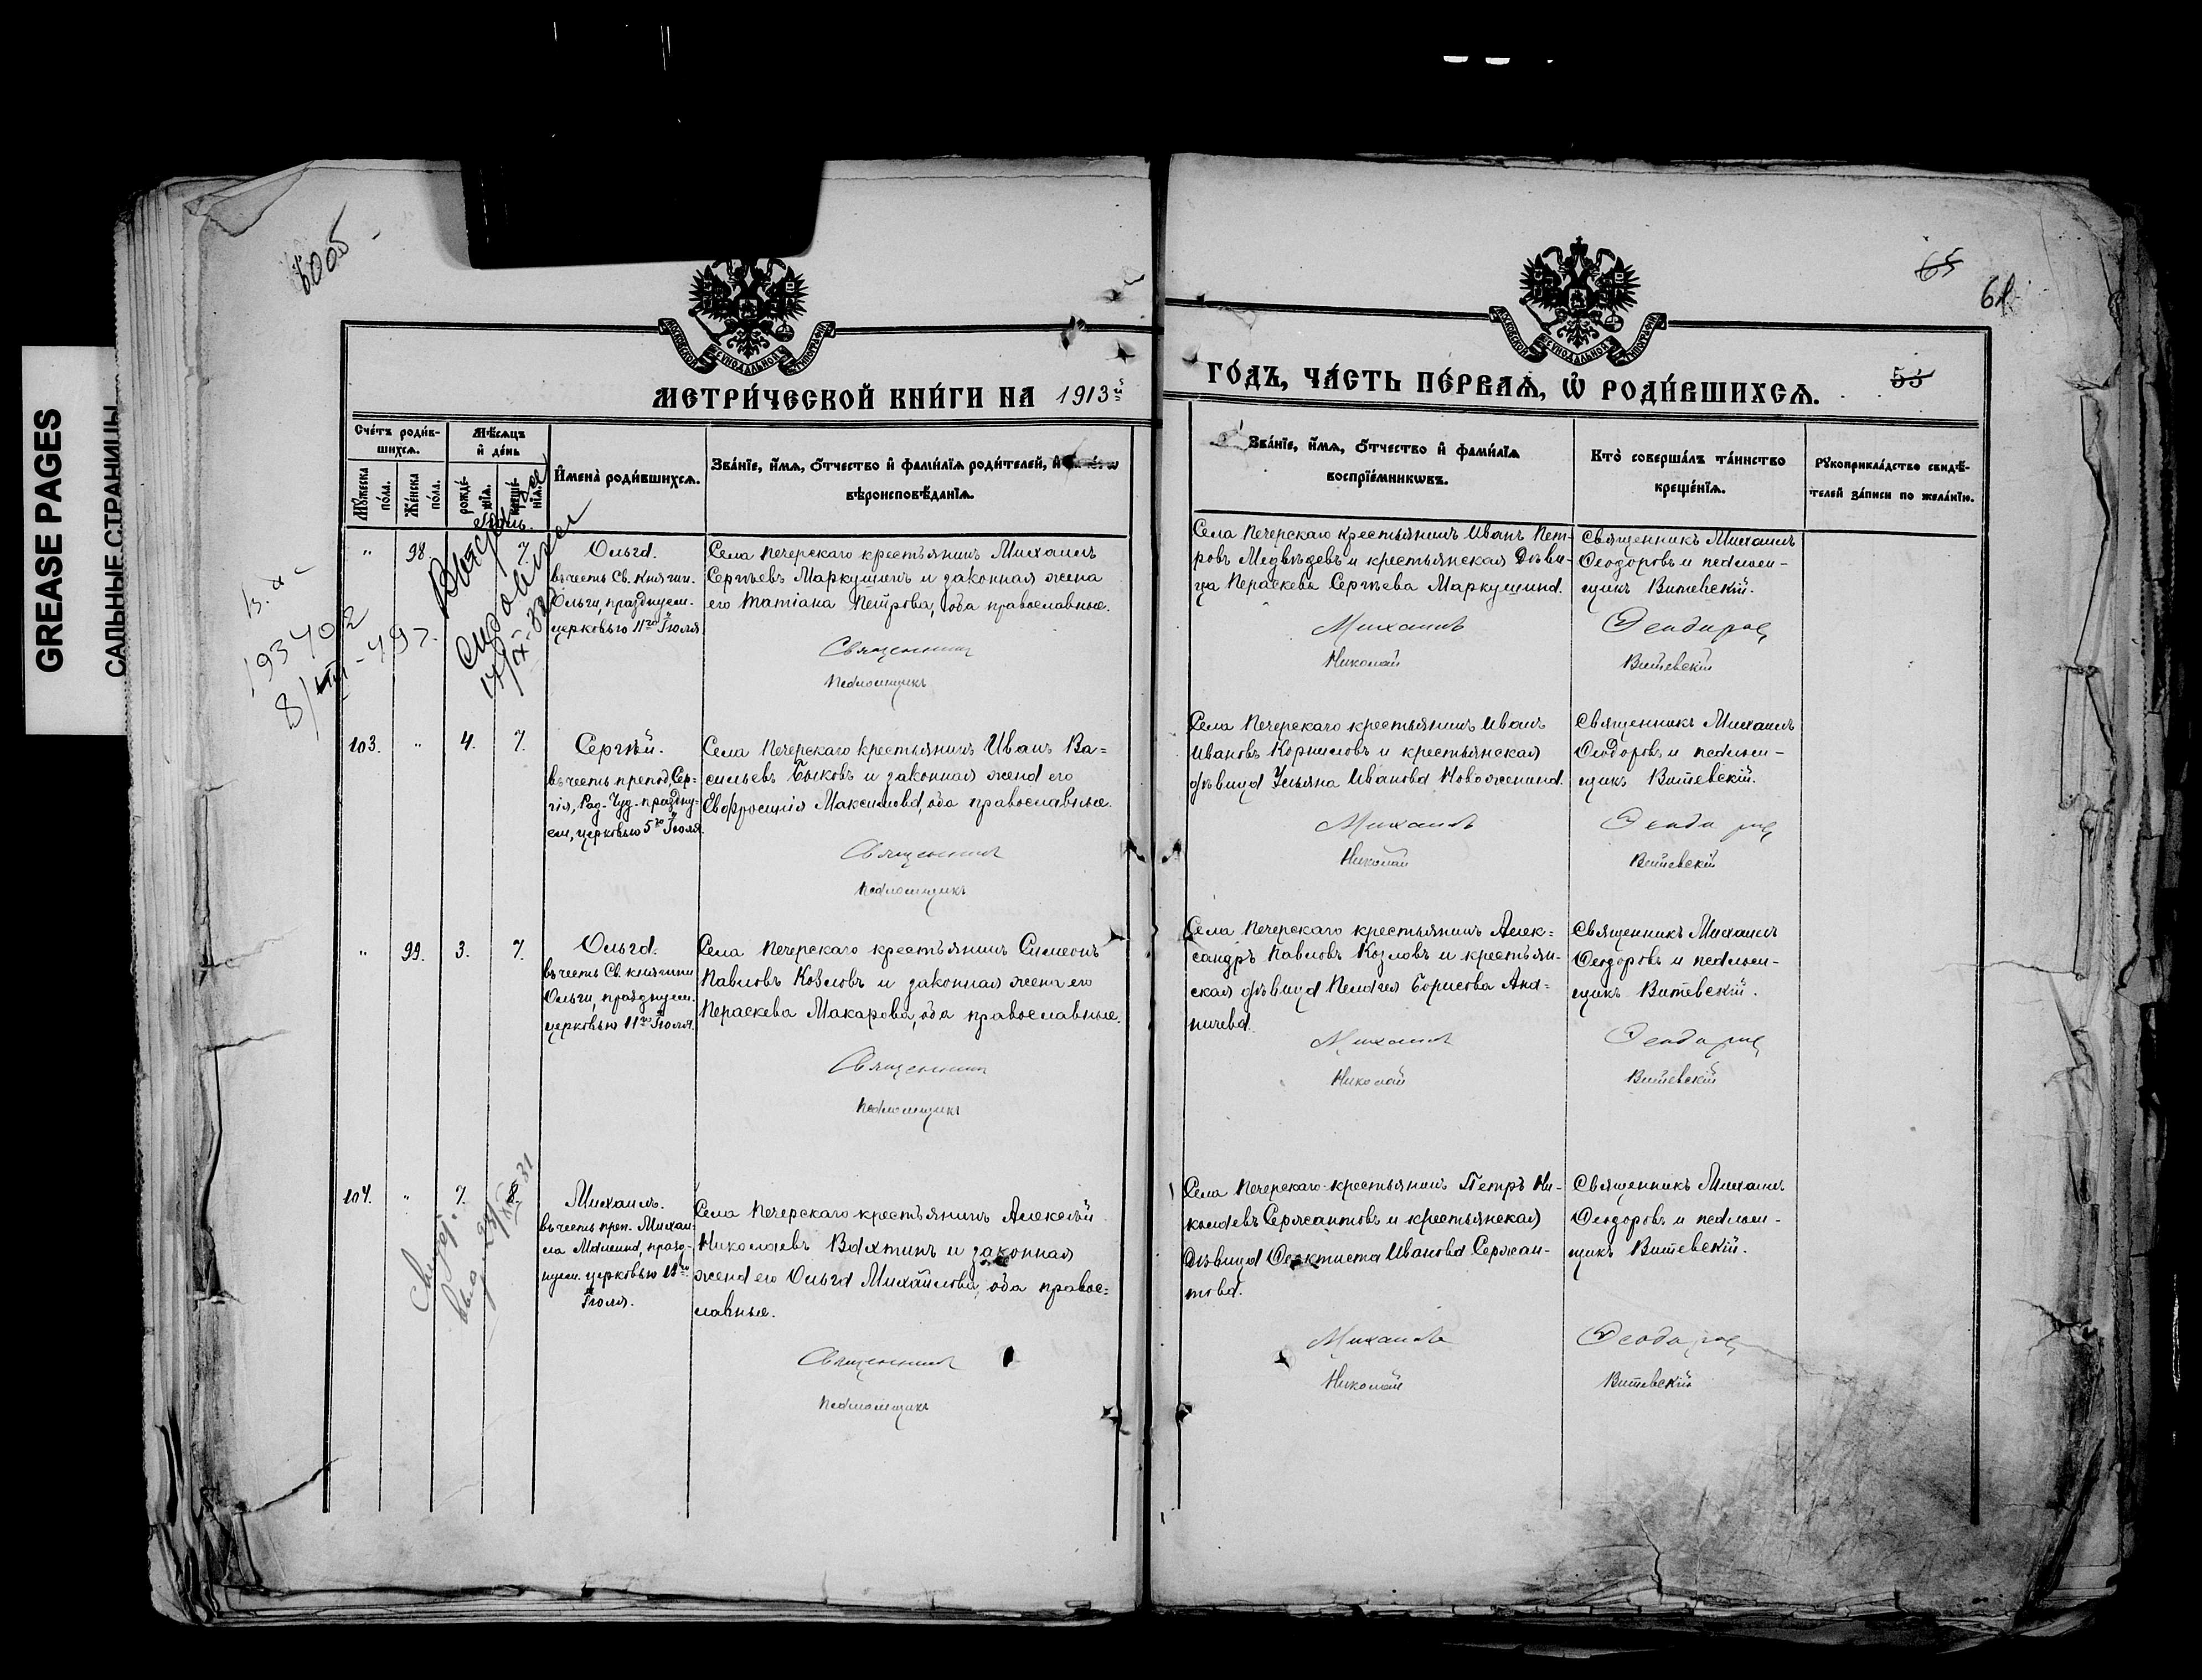 GREASE PAGES
САЛЬНЫЕ СТРАНИЦЫ
МЕТРИ́ЧЕСКОЙ КНИ́ГИ НА 1913й
ГО́ДЪ, ЧА́СТЬ ПЕ́РВАѦ, Ѡ҆ РОДИ́ВШИХСѦ.
65
61
53
МОСКОВСКОЙ СѴНОДАЛЬНОЙ ТИПОГРАФІИ
МОСКОВСКОЙ СѴНОДАЛЬНОЙ ТИПОГРАФІИ
Сче́тъ роди́в-
шихсѧ.
Мꙋ́жеска по́ла.
Же́нска по́ла.
Мѣ́сѧцъ
и҆ де́нь
рожде́-нїѧ.
креще́-нїѧ.
И҆мена̀ роди́вшихсѧ.
Зва́нїе, и҆́мѧ, о҆́тчество и҆ фами́лїѧ роди́телей, и҆
вѣроисповѣ́данїѧ.
Зва́нїе, и҆́мѧ, о҆́тчество и҆ фами́лїѧ
воспрїе́мникѡвъ.
Кто̀ соверша́лъ та́инство
креще́нїѧ.
Рꙋкоприкла́дство свидѣ́-
телей за́писи по жела́нїю.
" 98. 7.
Ольга.
въ честь Св. Княгин.
Ольги, празднуем.
церковью 11го Іюля.
Села Печерскаго крестьянинъ Михаилъ
Сергѣевъ Маркушинъ и законная жена
его Татіана Петрова, оба православные.
Священникъ
Псаломщикъ
Села Печерскаго крестьянинъ Иванъ Пет-
ровъ Медвѣдевъ и крестьянская дѣви-
ца Параскева Сергѣева Маркушина.
Михаилъ
Николай
Священникъ Михаилъ
Ѳеодоровъ и псалом-
щикъ Витевскій.
Ѳеодоровъ
Витевскій
103. " 4. 7.
Сергѣй.
въ честь препод. Сер-
гія, Рад. Чуд. праздну-
ем. церковью 5го Іюля.
Села Печерскаго крестьянинъ Иванъ Ва-
сильевъ Быковъ и законная жена его
Евфросинія Максимова, оба православные.
Священникъ
Псаломщикъ
Села Печерскаго крестьянинъ Иванъ
Ивановъ Корниловъ и крестьянская
дѣвица Ульяна Иванова Новоженина.
Михаилъ
Николай
Священникъ Михаилъ
Ѳеодоровъ и псалом-
щикъ Витевскій.
Ѳеодоровъ
Витевскій
" 99. 3. 7.
Ольга.
въ честь Св. княгини
Ольги, празднуем.
церковью 11го Іюля.
Села Печерскаго крестьянинъ Симеонъ
Павловъ Козловъ и законная жена его
Параскева Макарова, оба православные.
Священникъ
Псаломщикъ
Села Печерскаго крестьянинъ Алек-
сандръ Павловъ Козловъ и крестьян-
ская дѣвица Пелагія Борисова Ана-
ничева.
Михаилъ
Николай
Священникъ Михаилъ
Ѳеодоровъ и псалом-
щикъ Витевскій.
Ѳеодоровъ
Витевскій
104. " 7.
Михаилъ.
въ честь преп. Михаи-
ла Малеина, празд-
нуем. церковью 12го
Іюля.
Села Печерскаго крестьянинъ Алексѣй
Николаевъ Вахтинъ и законная
жена его Ольга Михайлова, оба право-
славные.
Священникъ
Псаломщикъ
Села Печерскаго крестьянинъ Петръ Ни-
колаевъ Сержантовъ и крестьянская
дѣвица Ѳеоктиста Иванова Сержан-
това.
Михаилъ
Николай
Священникъ Михаилъ
Ѳеодоровъ и псалом-
щикъ Витевскій.
Ѳеодоровъ
Витевскій